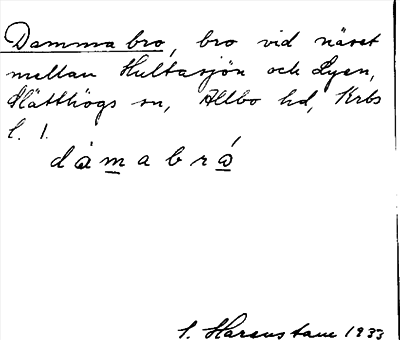 Damma bro, bro vid näset
mellan Hultasjön och Lyen,
Slätthögs sn, Allbo hd, Krbs
l. 1.
dåmabrå
S. Harenstam 1933